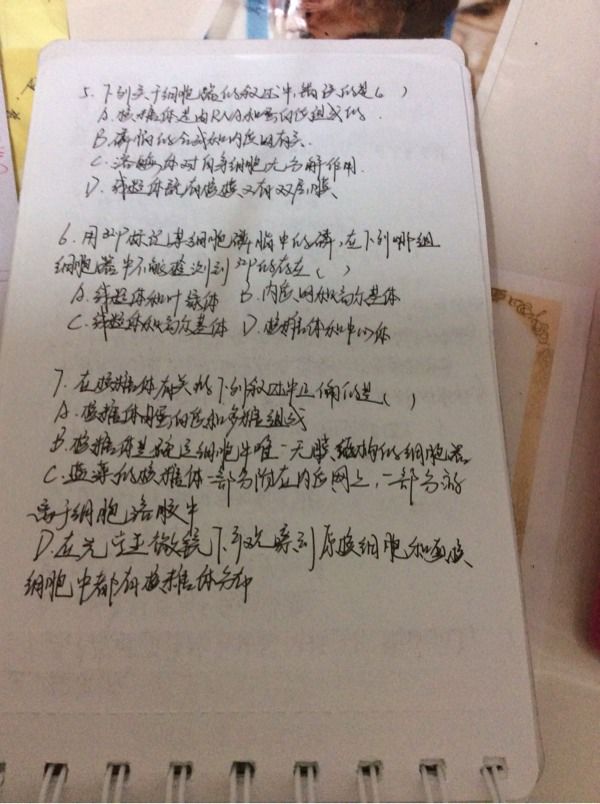 5. 下列关于细胞器的叙述中,错误的是( )
A. 核糖体是由RNA和蛋白质组成的.
B. 磷脂的合成和内质网有关.
C. 溶酶体对自身细胞无分解作用.
D. 线粒体既有核膜又有双层膜
6. 用³²P标记某细胞磷脂中的磷,在下列哪组
细胞器中不能检测到³²P的存在( )
A. 线粒体和叶绿体 B. 内质网和高尔基体
C. 线粒体和高尔基体 D. 核糖体和中心体
7. 在核糖体有关的下列叙述中正确的是( )
A. 核糖体由蛋白质和多糖组成
B. 核糖体是 这细胞中唯一无膜结构的细胞器.
C. 蓝藻的核糖体一部分附在内质网上,一部分游
离于细胞溶胶中
D. 在光学显微镜下可观察到原核细胞和真核
细胞中都有核糖体分布